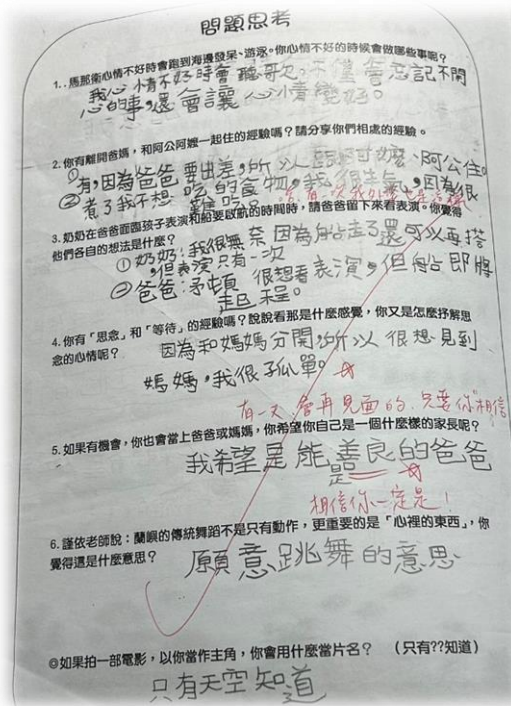 問題思考
1..馬那衛心情不好時會跑到海邊發呆、游泳。你心情不好的時候會做哪些事呢?
我心情不好時會聽歌。不僅會忘記不開
心的事,還會讓心情變好。
2.你有離開爸媽,和阿公阿嬤一起住的經驗嗎?請分享你們相處的經驗。
①有,因為爸爸要出差,所以跟阿嬤、阿公住。
②煮了我不想吃的食物,我很生氣,因為很
難吃。
3.奶奶在爸爸面臨孩子表演和船要啟航的時間時,請爸爸留下來看表演。你覺得
他們各自的想法是什麼?
①奶奶:我很無奈因為船走了還可以再搭
,但表演只有一次
②爸爸:矛頓 很想看表演,但船即將
起程。
4.你有「思念」和「等待」的經驗嗎?說說看那是什麼感覺,你又是怎麼抒解思
念的心情呢?
因為和媽媽分開,所以很想見到
媽媽,我很孤單。
有一天會再見面的,只要你相信
5.如果有機會,你也會當上爸爸或媽媽,你希望你自己是一個什麼樣的家長呢?
我希望是能善良的爸爸
是
相信你一定是!
6.謹依老師說:蘭嶼的傳統舞蹈不是只有動作,更重要的是「心裡的東西」,你
覺得這是什麼意思?
願意跳舞的意思
◎如果拍一部電影,以你當作主角,你會用什麼當片名? (只有??知道)
只有天空知道